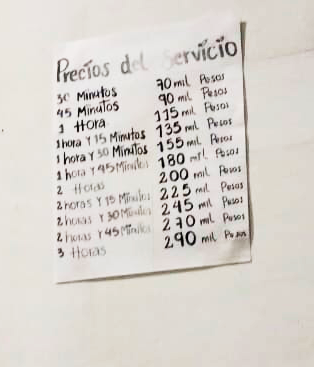 Precios del servicio
30 Minutos 70 mil Pesos
45 Minutos 90 mil Pesos
1 Hora 115 mil Pesos
1 hora Y 15 Minutos 135 mil Pesos
1 hora Y 30 Minutos 155 mil Pesos
1 hora Y 45 Minutos 180 mil Pesos
2 Horas 200 mil Pesos
2 horas Y 15 Minutos 225 mil Pesos
2 horas Y 30 Minutos 245 mil Pesos
2 horas Y 45 Minutos 270 mil Pesos
3 Horas 290 mil Pesos